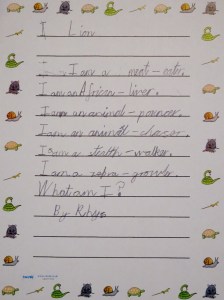 I Lion
I am a meat-eater.
I am an African-liver.
I am an animal-pouncer.
I am an animal-chaser.
I am a stealth-walker.
I am a zebra-
What am I?
By